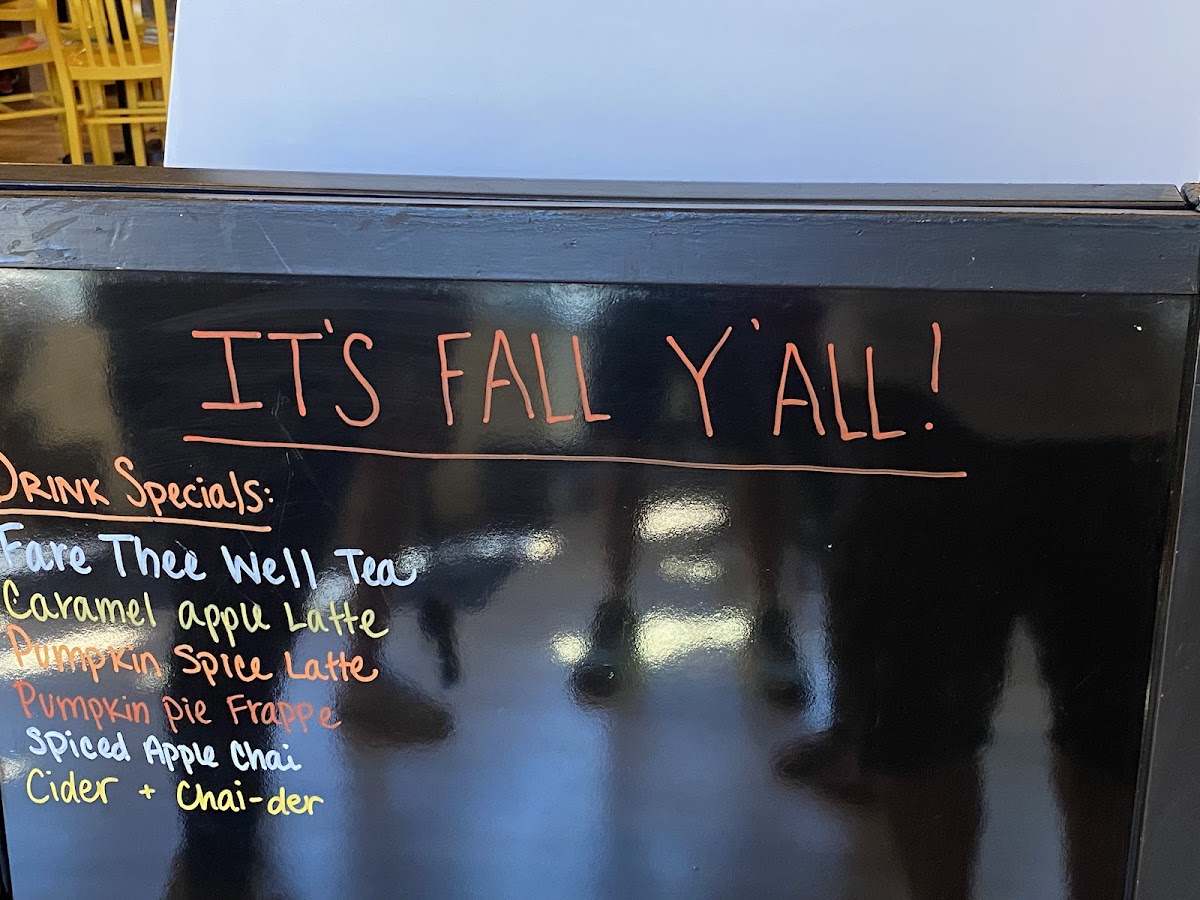 IT'S FALL Y'ALL!
DRINK Specials:
Fare Thee Well Tea
Caramel apple Latte
Pumpkin Spice Latte
Pumpkin pie Frappe
Spiced Apple Chai
Cider + Chai-der